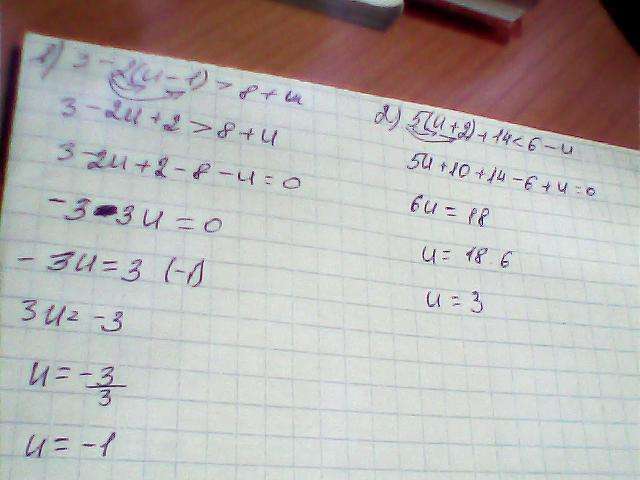 1) 3 - 2(u - 1) > 8 + u
3 - 2u + 2 > 8 + u
3 - 2u + 2 - 8 - u = 0
-3 - 3u = 0
- 3u = 3 (-1)
3u = -3
u = -3/3
u = -1
2) 5(u + 2) + 14 < 6 - u
5u + 10 + 14 - 6 + u = 0
6u = 18
u = 18 6
u = 3